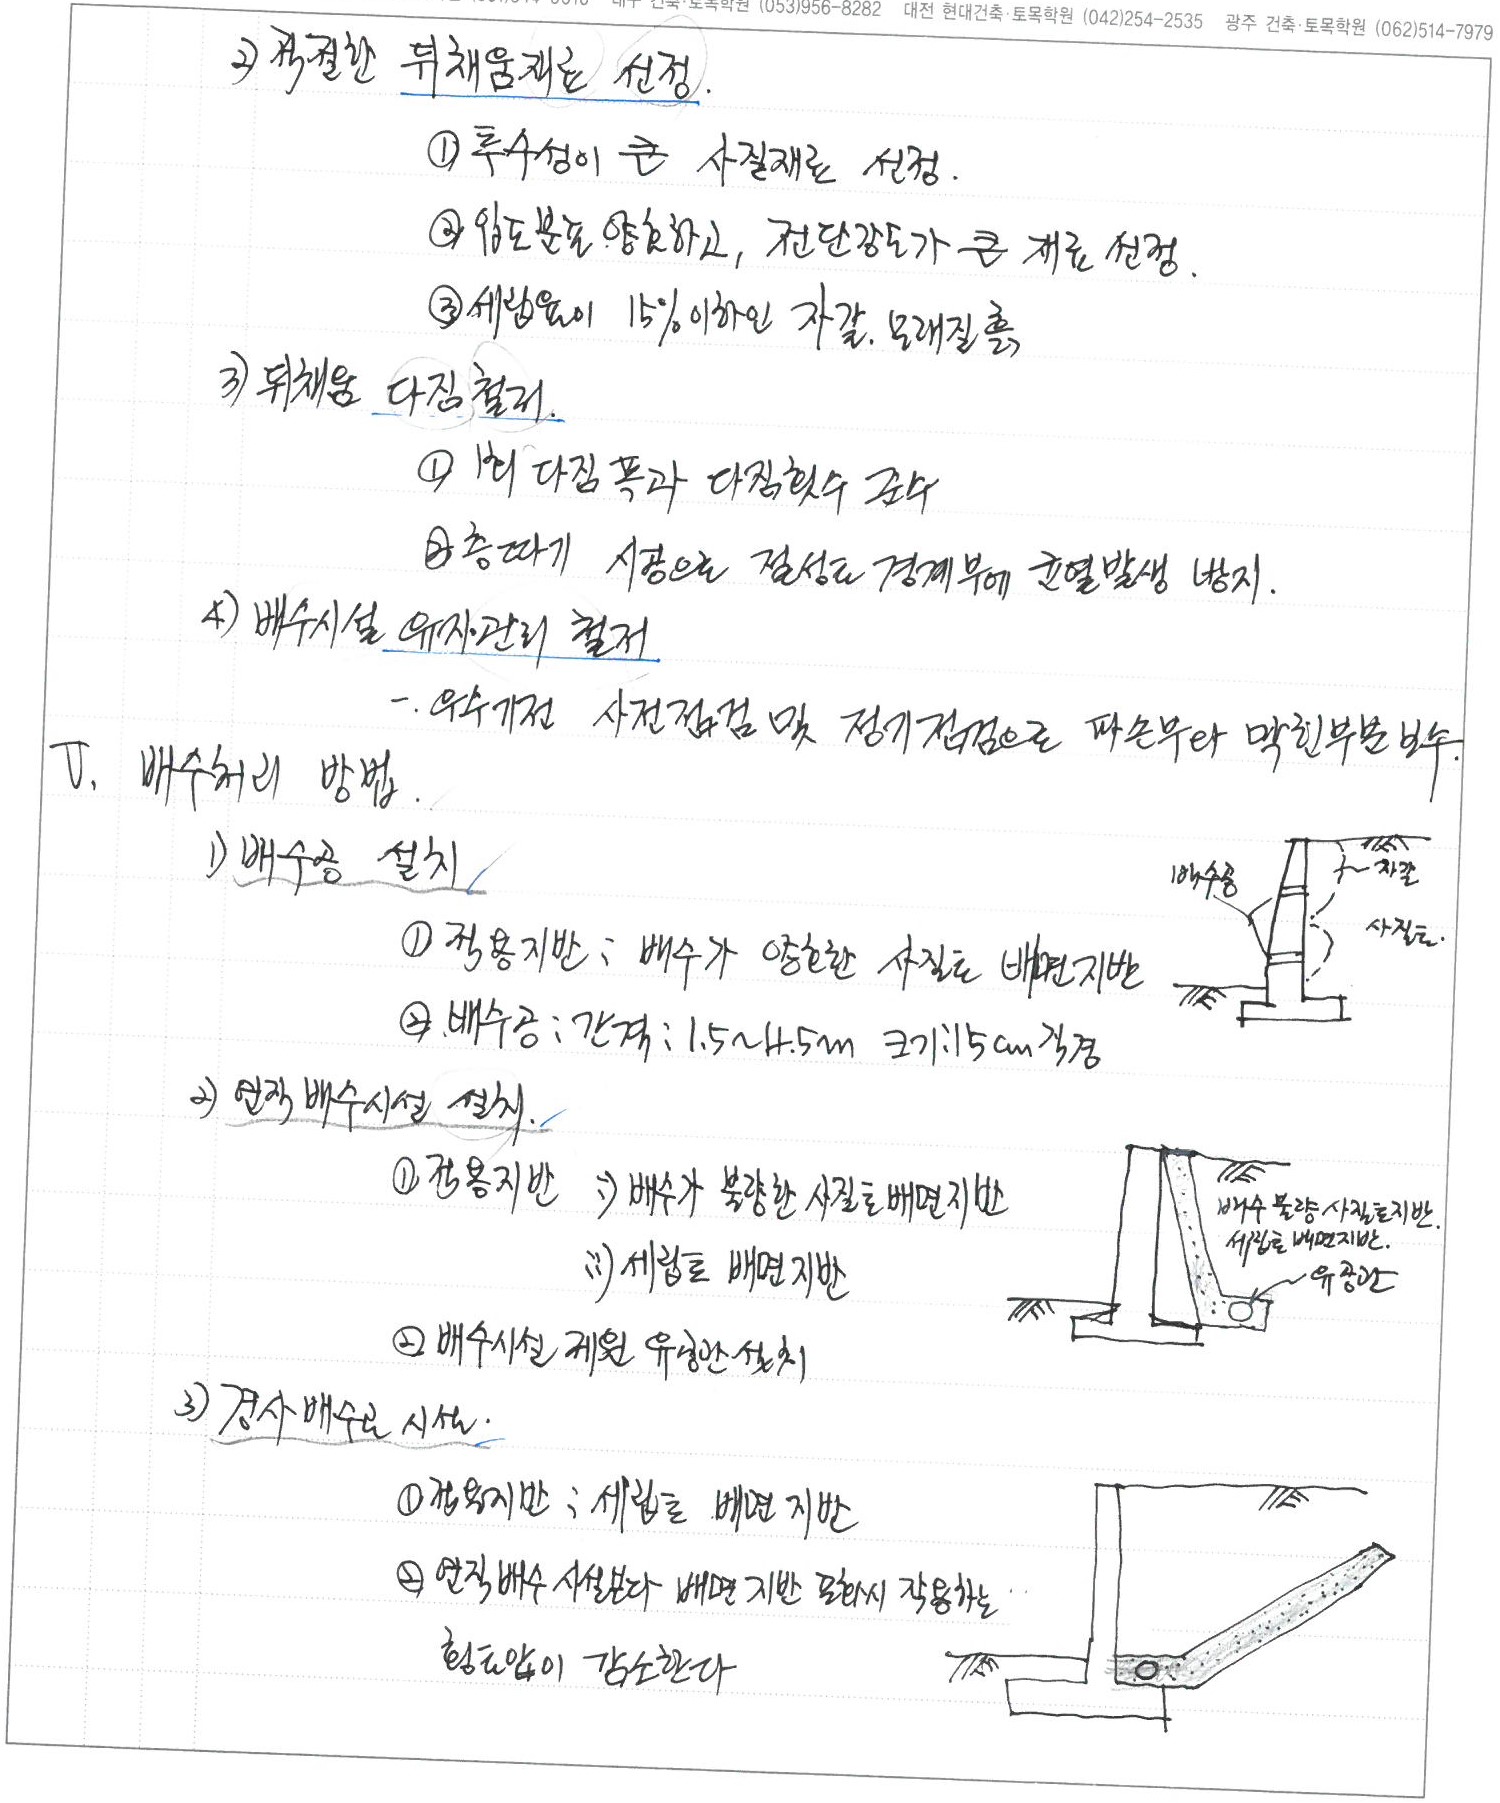 대구 건축·토목학원 (053)956-8282 대전 현대건축·토목학원 (042)254-2535 광주 건축·토목학원 (062)514-7979
2) 적절한 뒤채움재료 선정.
① 투수성이 큰 사질재료 선정.
② 입도분포 양호하고, 전단강도가 큰 재료 선정.
③ 세립율이 15%이하인 자갈. 모래질 흙
3) 뒤채움 다짐철저.
① 1회 다짐폭과 다짐횟수 준수
② 층따기 시공으로 절성토 경계부에 균열발생 방지.
4) 배수시설 유지관리 철저
-. 우수기전 사전점검 및 정기점검으로 파손부와 막힌부분 보수.
V. 배수처리 방법.
1) 배수공 설치
배수공
자갈
사질토.
① 적용지반 : 배수가 양호한 사질토 배면지반
② 배수공 : 간격 : 1.5~4.5m 크기:15cm 직경
2) 연직배수시설 설치.
① 적용지반 i) 배수가 불량한 사질토배면지반
ii) 세립토 배면지반
배수 불량 사질토지반.
세립토 배면지반.
유공관
② 배수시설 제원 유공관 설치
3) 경사배수로 시설.
① 적용지반 : 세립토 배면지반
② 연직배수 시설보다 배면지반 포화시 작용하는
횡토압이 감소한다